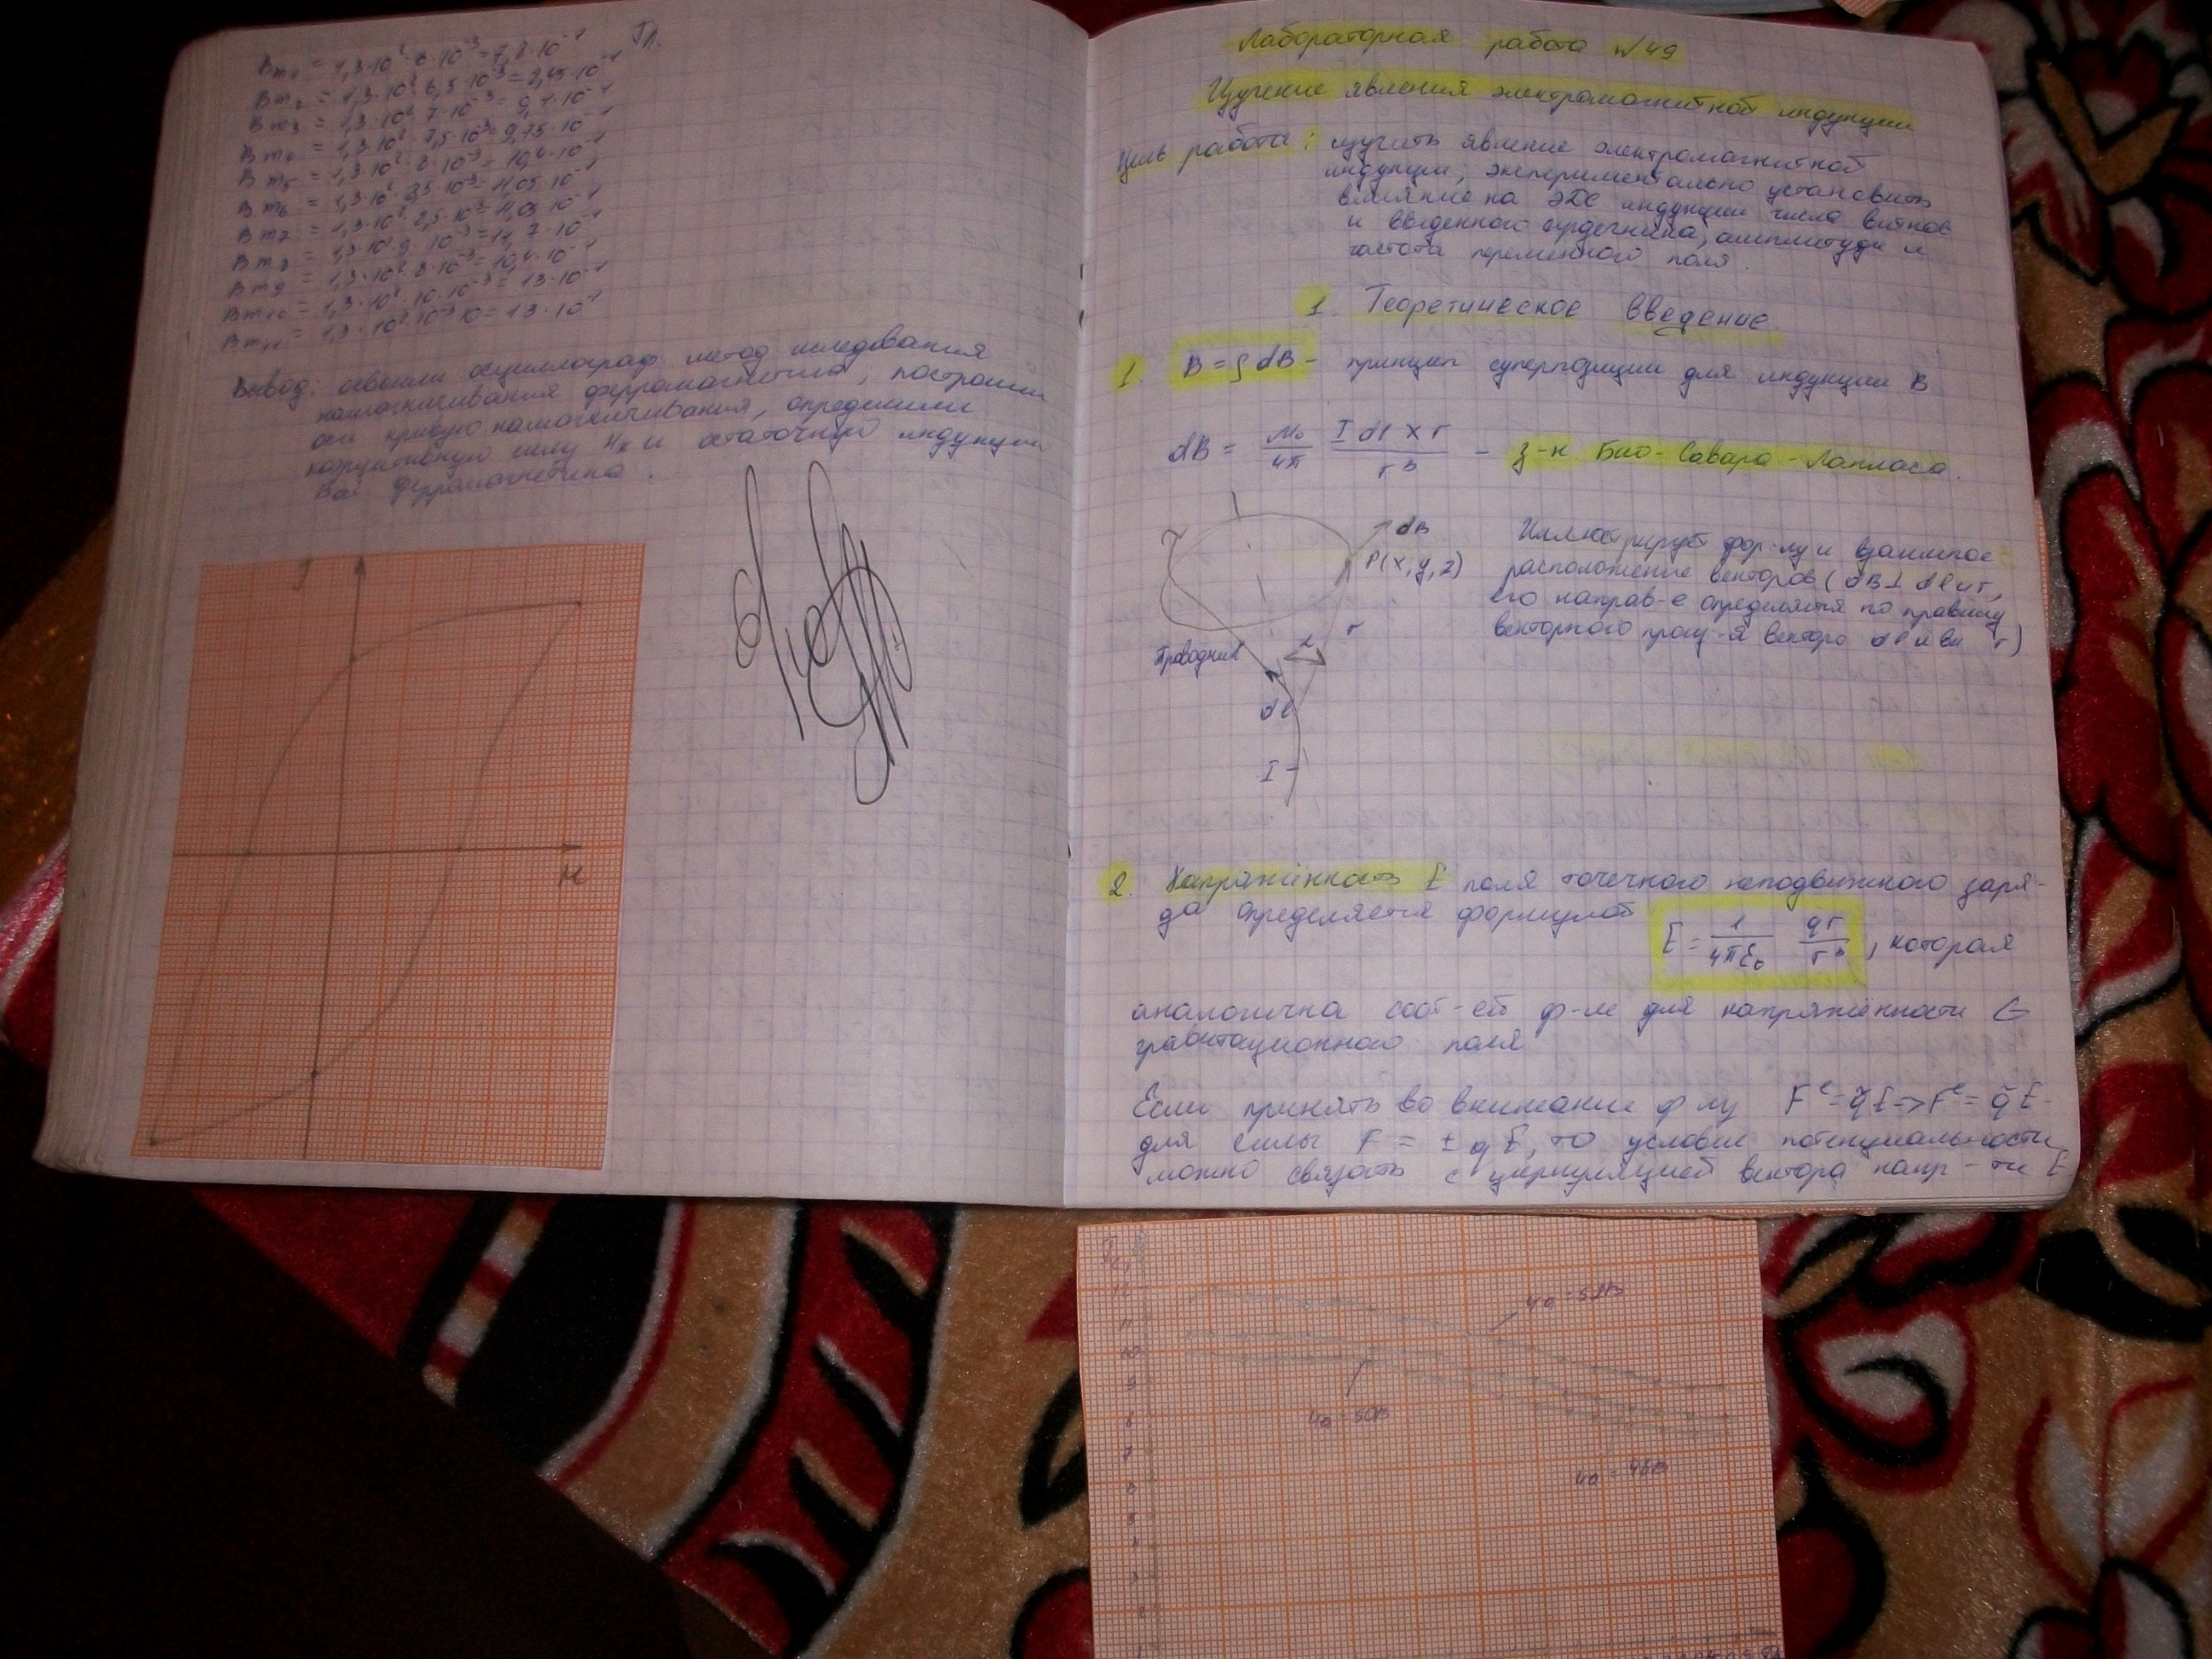 Тл.
Bm1 = 1,3·10² · 6·10⁻³ = 7,8·10⁻¹
Bm2 = 1,3·10² · 6,5·10⁻³ = 8,45·10⁻¹
Bm3 = 1,3·10² · 7·10⁻³ = 9,1·10⁻¹
Bm4 = 1,3·10² · 7,5·10⁻³ = 9,75·10⁻¹
Bm5 = 1,3·10² · 8·10⁻³ = 10,4·10⁻¹
Bm6 = 1,3·10² · 8,5·10⁻³ = 11,05·10⁻¹
Bm7 = 1,3·10² · 8,5·10⁻³ = 11,05·10⁻¹
Bm8 = 1,3·10² · 9·10⁻³ = 11,7·10⁻¹
Bm9 = 1,3·10² · 8·10⁻³ = 10,4·10⁻¹
Bm10 = 1,3·10² · 10·10⁻³ = 13·10⁻¹
Bm11 = 1,3·10² · 10⁻³ · 10 = 13·10⁻¹
Вывод: освоили осциллограф. метод
намагничивания ферромагнетика, построили
кривую намагничивания, определили
коэрцитивную силу Hк и остаточную индукцию
ферромагнетика.
H
Лабораторная работа №49
Изучение явления электромагнитной индукции
Цель работы: изучить явление электромагнитной
индукции; экспериментально установить
влияние на ЭДС индукции числа витков
и введенного сердечника, амплитуды и
частота переменного поля.
1. Теоретическое введение.
1. B = ∫ dB - принцип суперпозиции для индукции B
dB = μ₀/4π · I dl × r / r³ - з-н Био-Савара-Лапласа.
dB
P(x, y, z)
r
Проводник
dl
I
Иллюстрирует фор-лу и взаимное
расположение векторов (dB ⊥ dl и r,
его направ-е определяется по правилу
векторного
2. Напряжённость E поля точечного неподвижного заря-
да определяется формулой E = 1/4πε₀ · qr/r³, которая
аналогична соот-ей ф-ле для напряжённости G
гравитационного поля
Если принять во внимание ф-лу
для силы F = ± qE, то условие потенциальности
можно связать с циркуляцией вектора напр-ти E
12
11
10
9
8
7
6
5
4
3
2
1